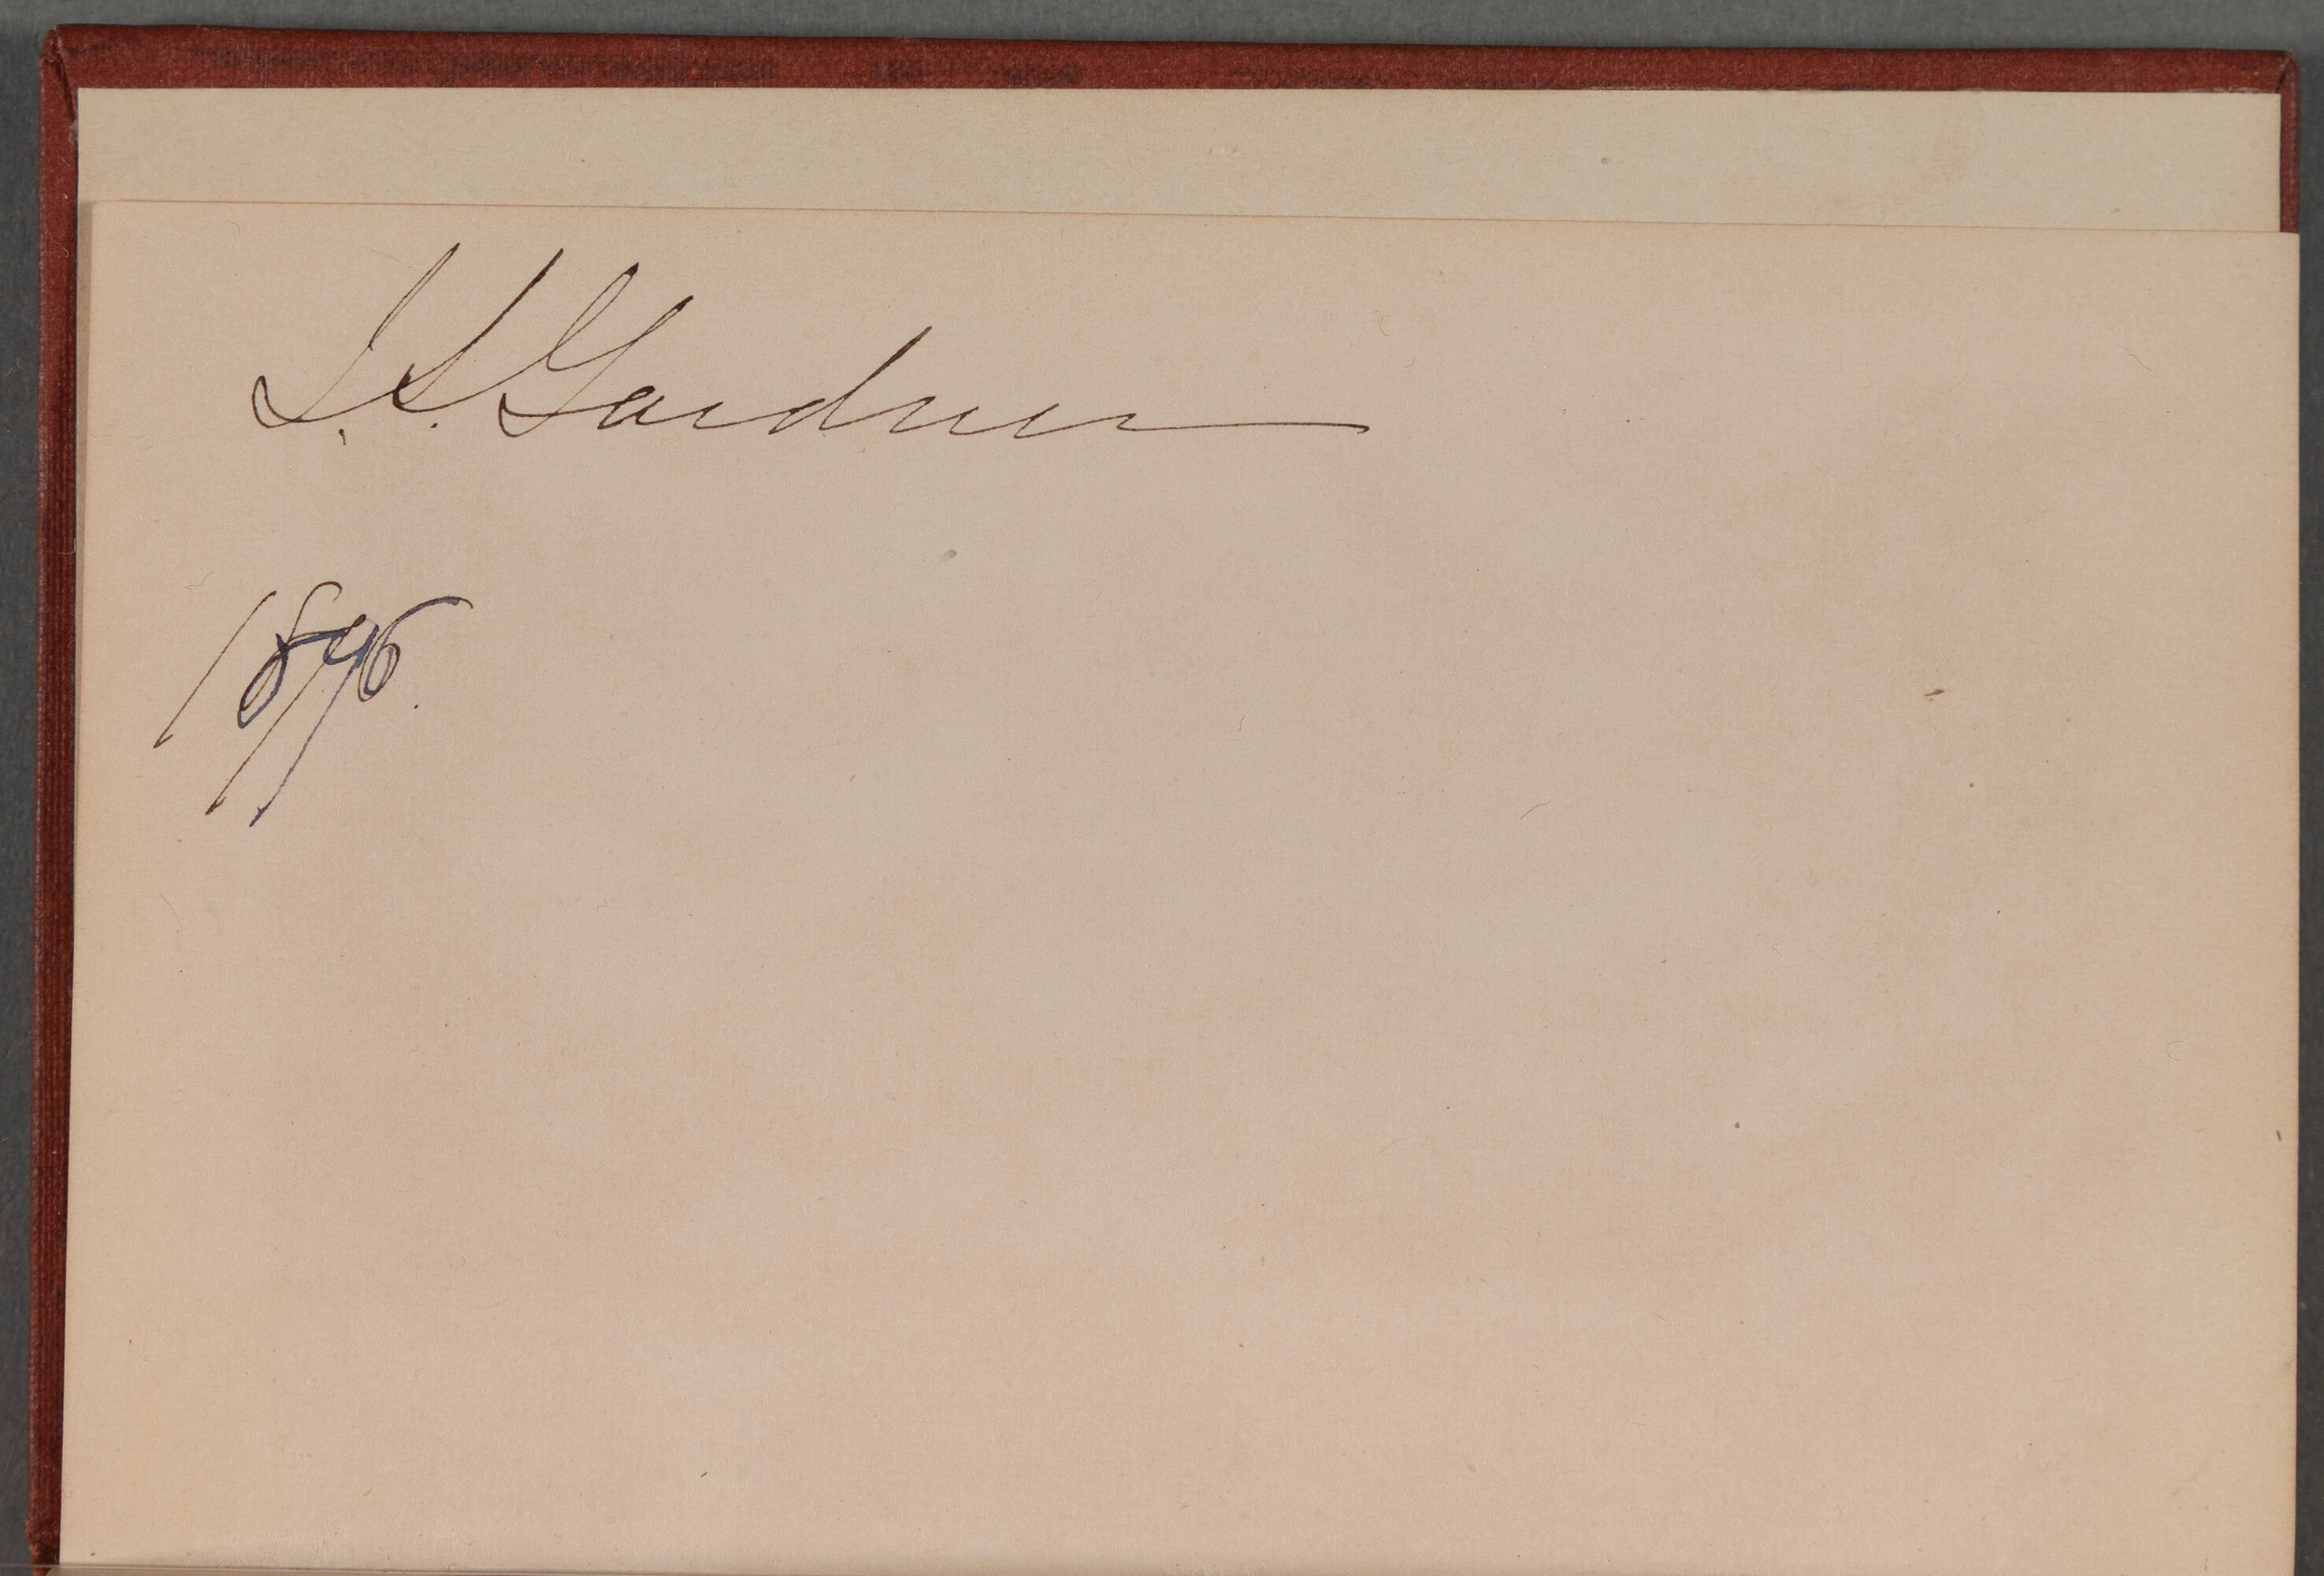 I. S. Gardner
1896.